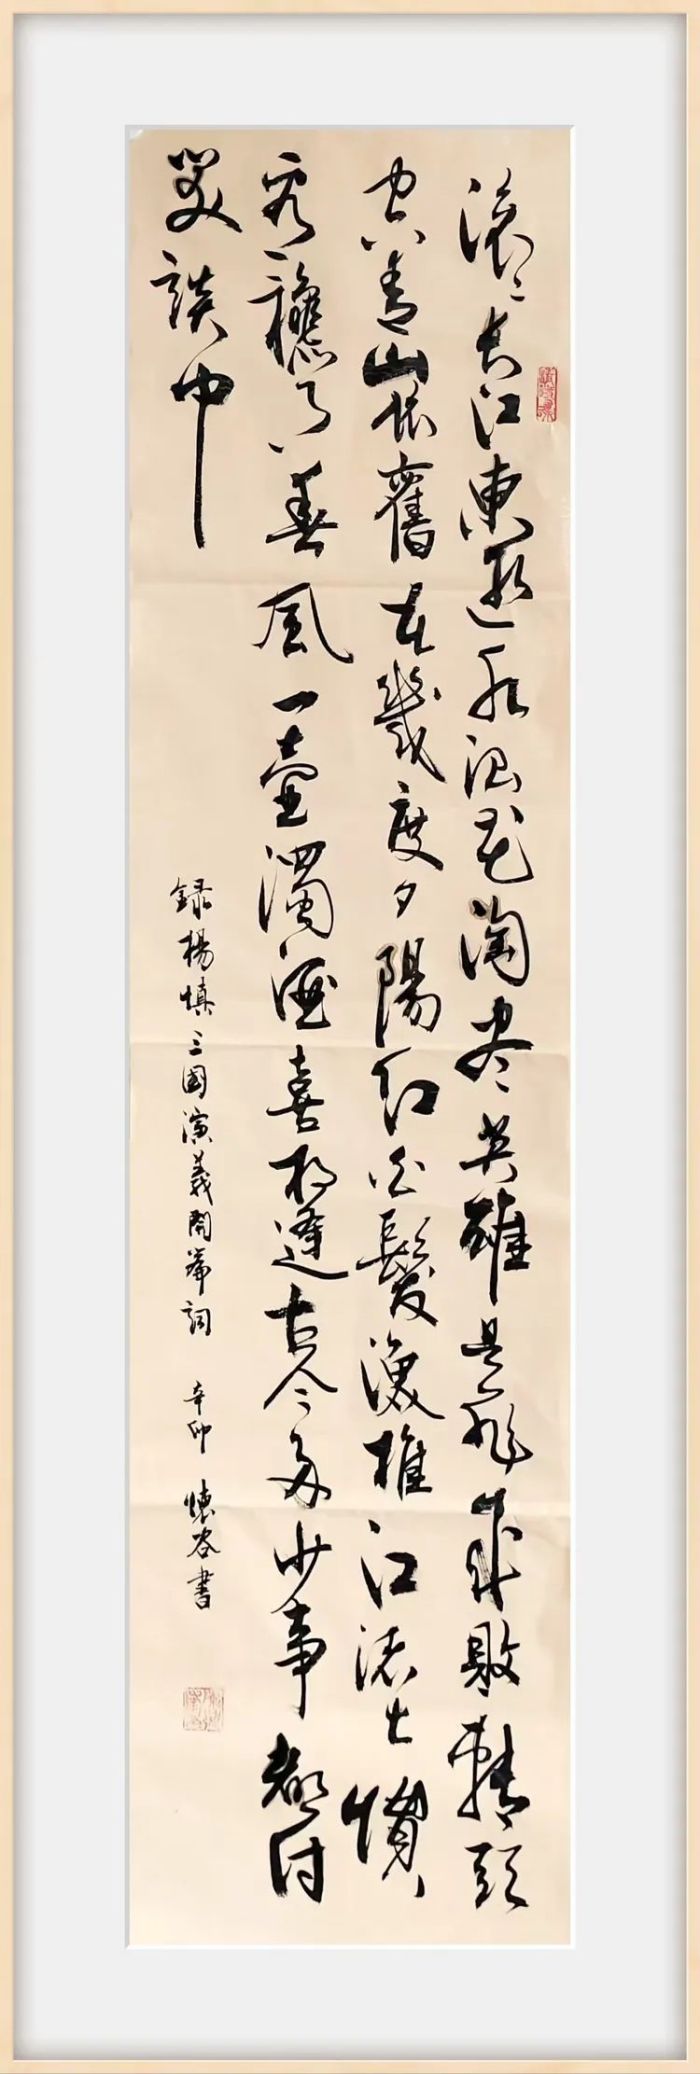 滚々長江東逝水浪花淘尽英雄是非成敗轉頭
空青山依舊在幾度夕陽紅白髮漁樵江渚上慣
看龝月春風一壺濁酒喜相逢古今多少事都付
笑談中
録楊慎三國演義開篇詞 辛卯 懷谷書